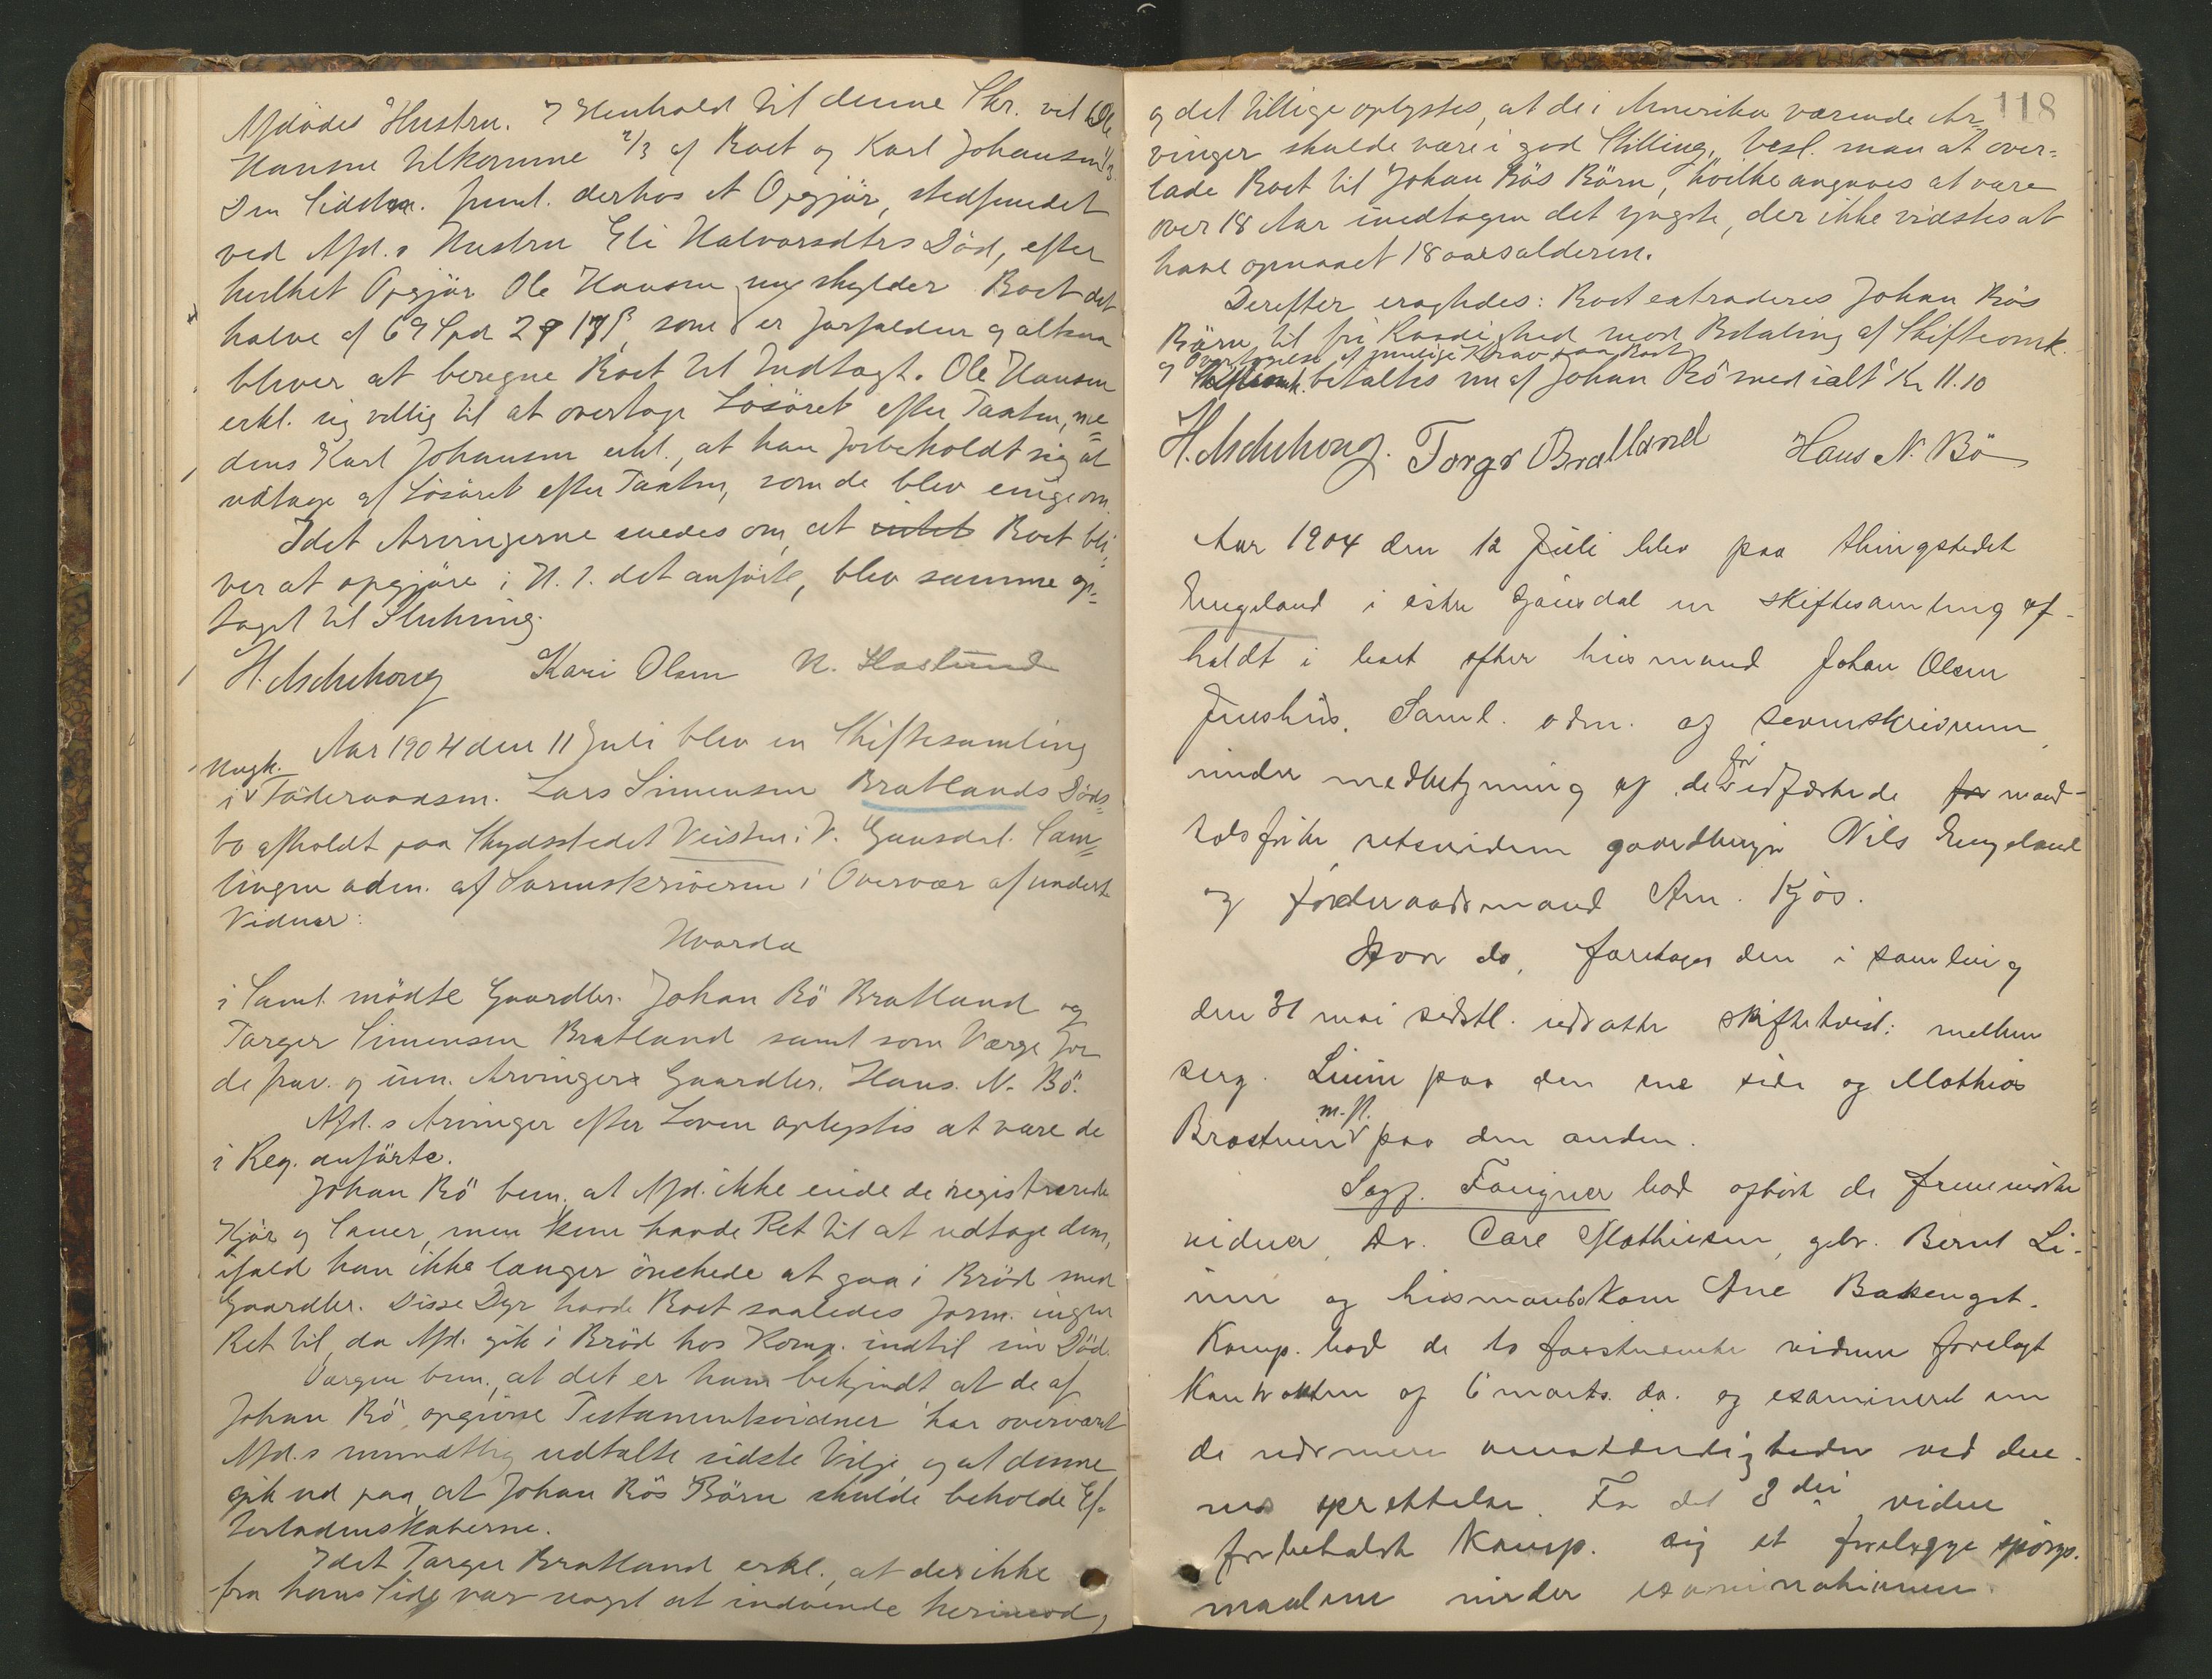 Afdödes Hustru. I Henhold til denne Skr. vil Ole
Hansen tilkomme 2/3 af Boet og Karl Johansen 1/3.
Den sidstn. freml. derhos et Opgjör, stedfundet
ved Afd.s Hustru Eli Halvorsdtrs Död, efter
hvilket Opgjör Ole Hansen skylder Boet det
halve af 69 Spd 2 17 β, som er forfalden og altsaa
bliver at beregne Boet til Indtægt. Ole Hansen
erkl. sig villig til at overtage Lösöret efter Taxten, me=
dens Karl Johansen erkl., at han forbeholdt sig at
udtage af Lösöret efter Taxten, som de blev enige om.
Idet Arvingerne enedes om, at Boet bli=
ver at opgjöre i H. t. det anförte, blev samme op=
taget til Slutning.
H. Aschehoug Kari Olsen N. Haslund
Aar 1904 den 11 Juli blev en Skiftesamling
i Föderaadsm. Lars Simensen Bratlands Döds=
bo afholdt paa Skydsstedet Veisten i V. Gausdal. Sam=
lingen adm. af Sorenskriveren i Overvær af underst.
Vidner:
Hvorda
i Saml. mödte Gaardbr. Johan Bö Bratland og
Torger Simensen Bratland samt som Værge for
de frav. og um. Arvinger Gaardbr. Hans N. Bö.
Afd.s Arvinger efter Loven oplystes at være de
i Reg. anförte.
Johan Bö bem. at Afd. ikke eiede de registrerede
Kjör og Sauer, men kun havde Ret til at udtage dem,
ifald han ikke længer önskede at gaa i Bröd med
Gaardbr. Disse Dyr havde Boet saaledes form. ingen
Ret til, da Afd. gik i Bröd hos Komp. indtil sin Död.
Værgen bem., at det er ham bekjendt at de af
Johan Bö opgivne Testamentsvidner har overværet
Afd.s mundtlig udtalte sidste Vilje og at denne
gik ud paa, at Johan Bös Börn skulde beholde Ef=
terladenskaberne.
Idet Torger Bratland erkl., at der ikke
fra hans Side var noget at indvende herimod,
118
og det tillige oplystes, at de i Amerika værende Ar=
vinger skulde være i god Stilling, besl. man at over=
lade Boet til Johan Bös Börn, hvilke angaves at være
over 18 Aar undtagen det yngste, der ikke vidstes at
have opnaaet 18 aarsalderen.
Derefter eragtedes: Boet extraderes Johan Bös
Börn til fri Raadighed mod Betaling af Skifteomk.
og Overtagelse af mulige Krav paa Boet
Skifteomk. betaltes nu af Johan Bö med ialt Kr 11.10
H. Aschehoug. Torger Bratland Hans N. Bö
Aar 1904 den 12 Juli blev paa thingstedet
Engeland i östre Gausdal en skiftesamling af-
holdt i boet efter husmand Johan Olsen
Saml. adm. og sorenskriveren
under medbetjening af de edfæstede mand-
talsförte retsvidner gaardbruger Nils Engeland
og föderaadsmand Kjös.
Hvor da, foretages den i samling
den 31 mai sidstl. udsatte skiftetvist: mellem
serg. Liium paa den ene side og Mathias
Brostuen m. fl. paa den anden.
Sagf. Fougner bad afhört de fremmödte
vidner, Dr. Carl Mathiesen, gbr. Bernt Li-
ium og husmandskone Ane Bakenget.
Komp. bad de to förstnævnte vidner forelagt
Kontrakten af 6 marts. da. og examineret om
de nærmere omstændigheder ved den-
nes oprettelse. For det 3die vidne
forbeholdt Komp. sig at forelægge spörgs.
maalene under examinationen